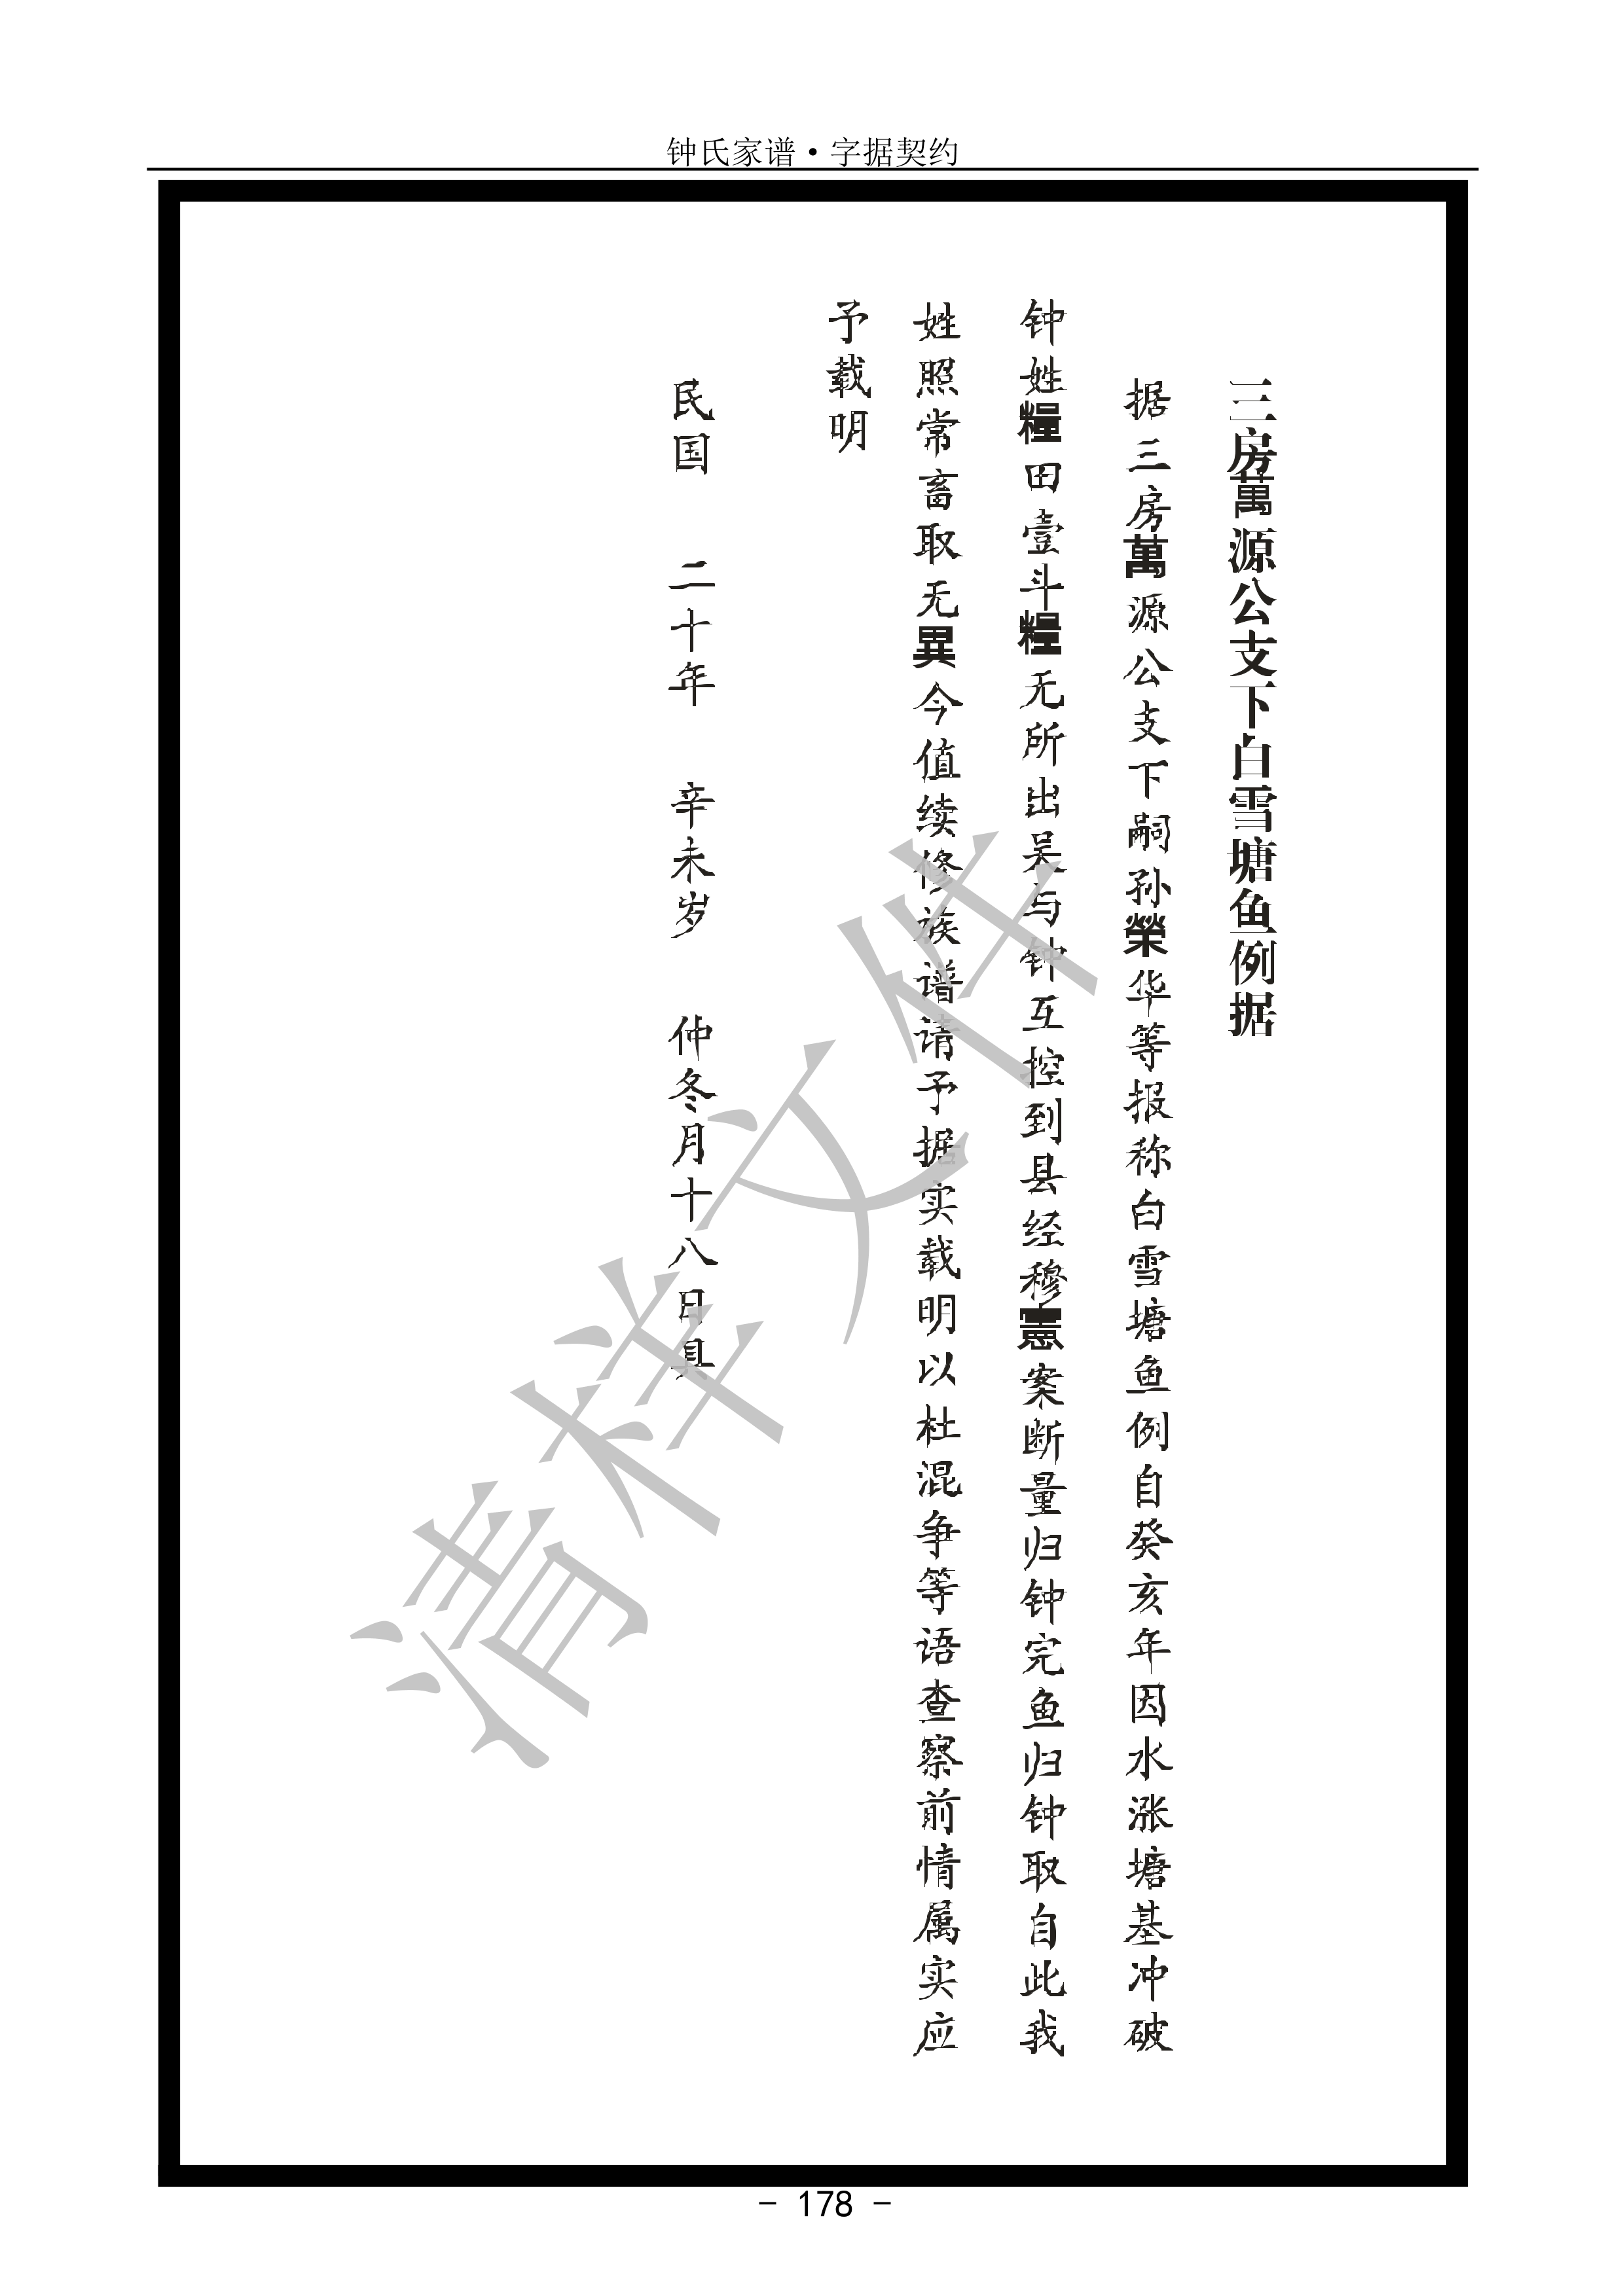 钟氏家谱·字据契约
三房萬源公支下白雪塘鱼例据
据三房萬源公支下嗣孙榮华等报称白雪塘鱼例自癸亥年因水涨塘基冲破
钟姓糧田壹斗糧无所出吴与钟互控到县经穆憲案断量归钟完鱼归钟取自此我
姓照常畜取无異今值续修族谱请予据实载明以杜混争等语查察前情属实应
予载明
民国 二十年 辛未岁 仲冬月十八日具
清样文件
- 178 -